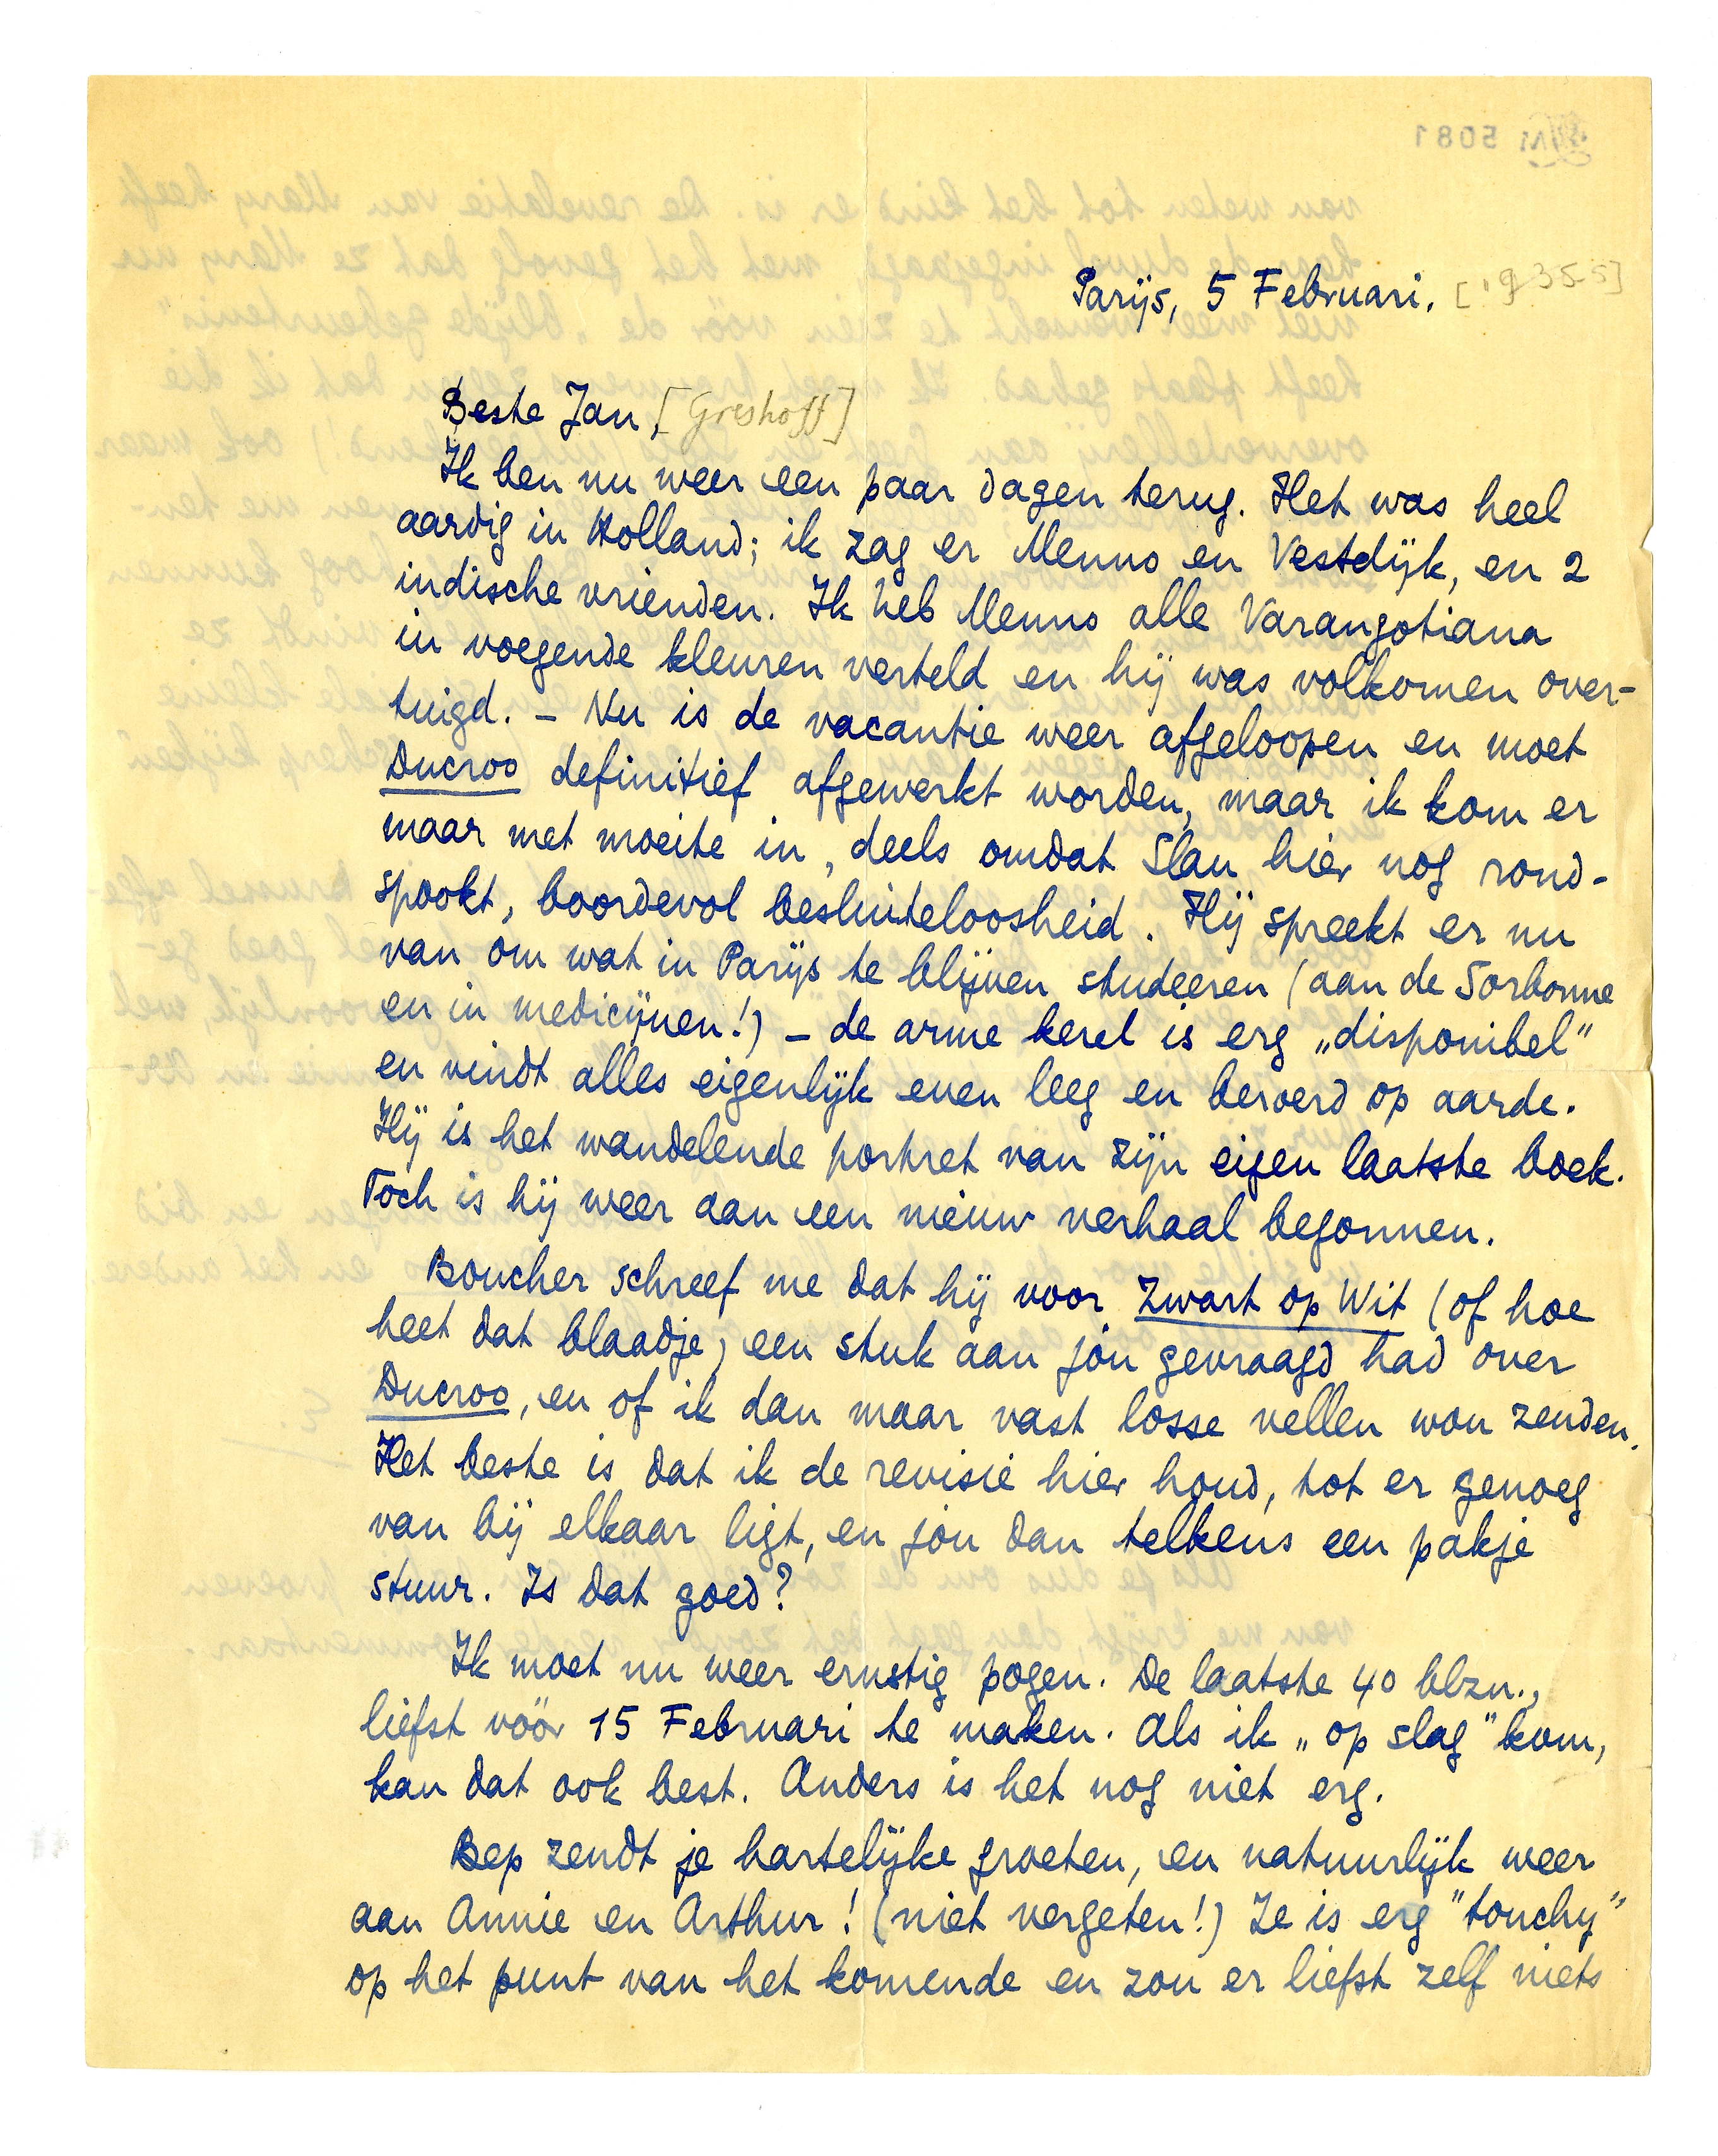 Parijs, 5 Februari. [1935]
Beste Jan, [Greshoff]
Ik ben nu weer een paar dagen terug. Het was heel
aardig in Holland; ik zag er Menno en Vestdijk, en 2
indische vrienden. Ik heb Menno alle Varangotiana
in voegende kleuren verteld en hij was volkomen over-
tuigd. – Nu is de vacantie weer afgeloopen en moet
Ducroo definitief afgewerkt worden, maar ik kom er
maar met moeite in, deels omdat Slau hier nog rond-
spookt, boordevol besluiteloosheid. Hij spreekt er nu
van om wat in Parijs te blijven studeeren (aan de Sorbonne
en in medicijnen!) – de arme kerel is erg „disponibel”
en vindt alles eigenlijk even leeg en beroerd op aarde.
Hij is het wandelende portret van zijn eigen laatste boek.
Toch is hij weer aan een nieuw verhaal begonnen.
Boucher schreef me dat hij voor Zwart op Wit (of hoe
heet dat blaadje) een stuk aan jou gevraagd had over
Ducroo, en of ik dan maar vast losse vellen wou zenden.
Het beste is dat ik de revisie hier houd, tot er genoeg
van bij elkaar ligt, en jou dan telkens een pakje
stuur. Is dat goed?
Ik moet nu weer ernstig pogen. De laatste 40 blzn.,
liefst vóór 15 Februari te maken. Als ik „op slag” kom,
kan dat ook best. Anders is het nog niet erg.
Bep zendt je hartelijke groeten, en natuurlijk weer
aan Annie en Arthur! (niet vergeten!) Ze is erg "touchy"
op het punt van het komende en zou er liefst zelf niets